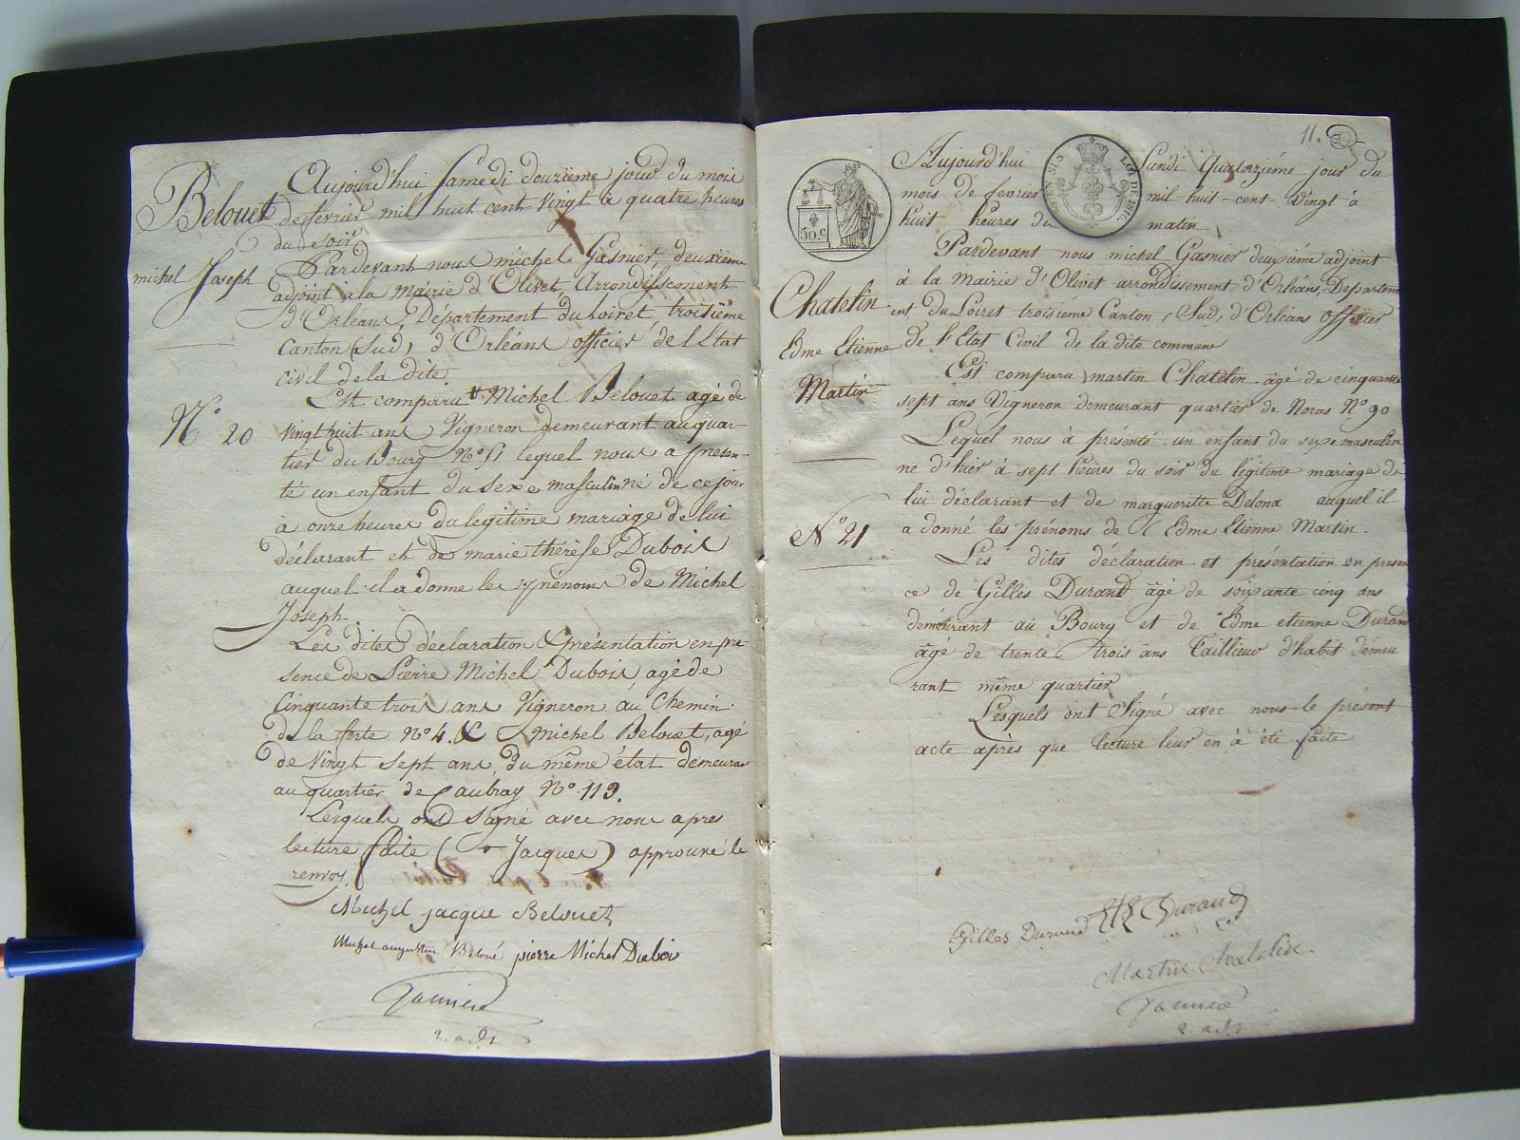 Belouet
michel Joseph
N° 20
Aujourd'hui Samedi douzième jour du mois
de fevrier mil huit cent vingt à quatre heures
du Soir
Pardevant nous michel Gasnier deuxième
adjoint à la Mairie d'Olivet, Arrondissement
d'Orléans, Département du Loiret, troisième
Canton (Sud) d'Orléans officier de l'Etat
Civil de la dite.
Est comparu + Michel Belouet agé de
Vingt huit ans Vigneron demeurant au quar-
tier du Bourg N° 51 lequel nous a présen-
té un enfant du Sexe masculin né de ce jour
a onze heures du legitime mariage de lui
déclarant et de marie thérèse Dubois
auquel il a donné les prénoms de Michel
Joseph.
Les dites déclaration & présentation en pre-
sence de Pierre Michel Dubois, agé de
Cinquante trois ans Vigneron au Chemin
de la ferte N° 4. & michel Belouet, agé
de Vingt Sept ans, du même état demeurant
au quartier de Caubray N° 119.
Lesquels ont Signé avec nous apres
lecture faite (+ Jacques) approuvé le
renvoy.
Michel jacque Belouet
Michel augustin Beloué pierre Michel Dubois
Gasnier
2. adt
11.
50 c
Chatelin
Edme Etienne
Martin
N° 21
Aujourd'hui Lundi Quatorzième jour du
mois de fevrier mil huit-cent-Vingt à
huit heures du matin
Pardevant nous michel Gasnier deuxième adjoint
à la Mairie d'Olivet arrondissement d'Orléans, Departem
ent du Loiret troisième Canton, Sud, d'Orléans officier
de l'Etat Civil de la dite commune
Est comparu martin Chatelin âgé de cinquante
sept ans Vigneron demeurant quartier de Noras N° 90
Lequel nous à présenté un enfant du sexe masculin
né d'hier à sept heures du soir du légitime mariage de
lui déclarant et de margueritte Delona auquel il
a donné les prénoms de Edme Etienne Martin.
Les dites déclaration et présentation en presen
ce de Gilles Durand âgé de soixante cinq ans
demeurant au Bourg et de Edme etienne Durand
âgé de trente trois ans Taillieur d'habit demeu
rant même quartier
Lesquels ont Signé avec nous le présent
acte après que lecture leur en à été faite
Gilles Durand Durand
Martin Chatelin
Gasnier
2. adt